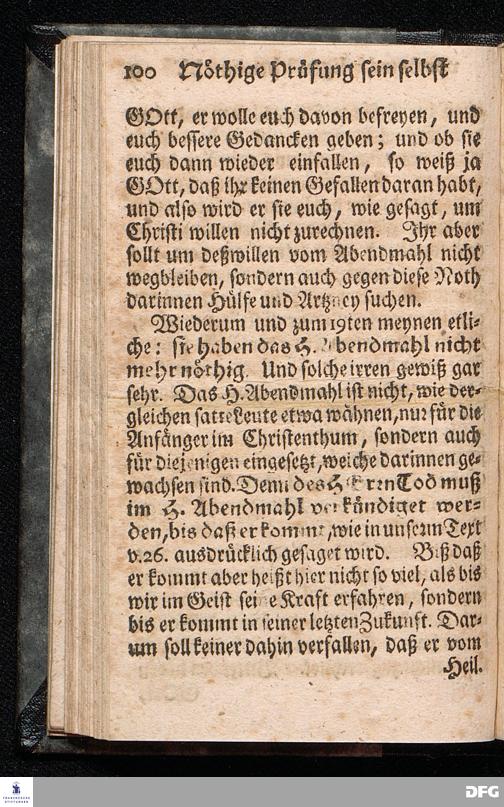 100 Nöthige Prüfung sein selbst
GOtt, er wolle euch davon befreyen, und
euch bessere Gedancken geben; und ob sie
euch dann wieder einfallen, so weiß ja
GOtt, daß ihr keinen Gefallen daran habt,
und also wird er sie euch, wie gesagt, um
Christi willen nicht zurechnen. Ihr aber
sollt um deßwillen vom Abendmahl nicht
wegbleiben, sondern auch gegen diese Noth
darinnen Hülfe und Artzney suchen.
Wiederum und zum 19ten meynen etli-
che: sie haben das H. Abendmahl nicht
mehr nöthig. Und solche irren gewiß gar
sehr. Das H. Abendmahl ist nicht, wie der-
gleichen satte Leute etwa wähnen, nur für die
Anfänger im Christenthum, sondern auch
für diejenigen eingesetzt, welche darinnen ge-
wachsen sind. Denn des HErrn Tod muß
im H. Abendmahl verkündiget wer-
den, bis daß er kommt, wie in unserm Text
v. 26. ausdrücklich gesaget wird. Biß daß
er kommt aber heißt hier nicht so viel, als bis
wir im Geist seine Kraft erfahren, sondern
bis er kommt in seiner letzten Zukunft. Dar-
um soll keiner dahin verfallen, daß er vom
Heil.
DFG
FRANCKESCHE
STIFTUNGEN